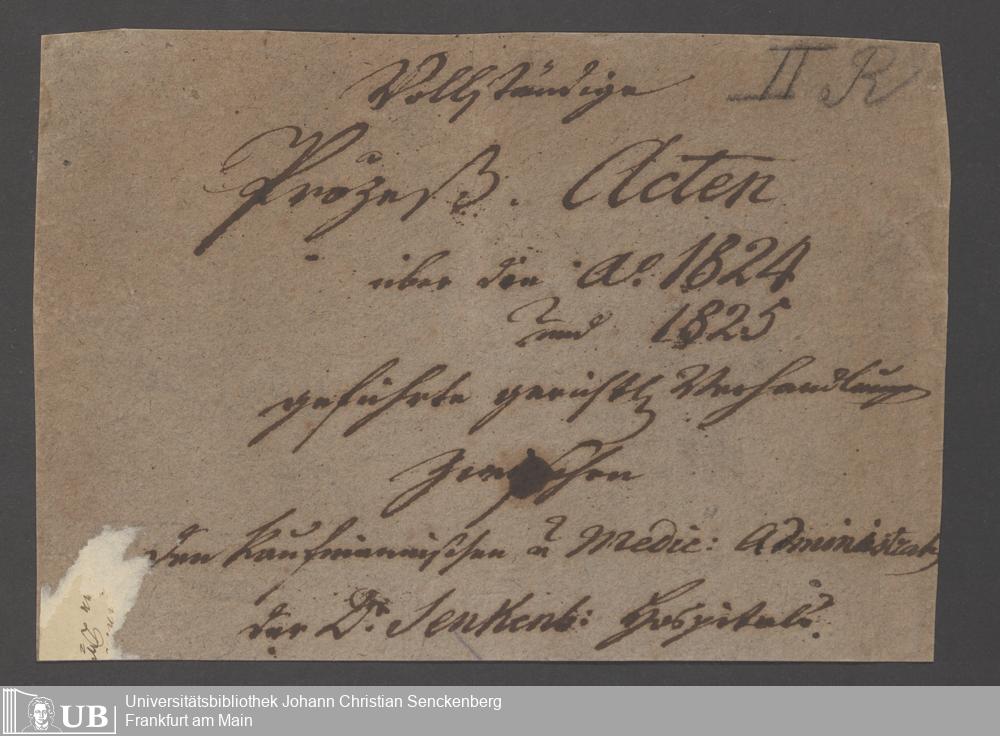 Vollständige
II R
Prozeß. Acten
über die Aº. 1824
und 1825
geführte gerichtl Verhandlung
zwischen
den kaufmännischen u Medic: Administrat
des Dr. Senkenb: Hospitals.
UB
Universitätsbibliothek Johann Christian Senckenberg
Frankfurt am Main